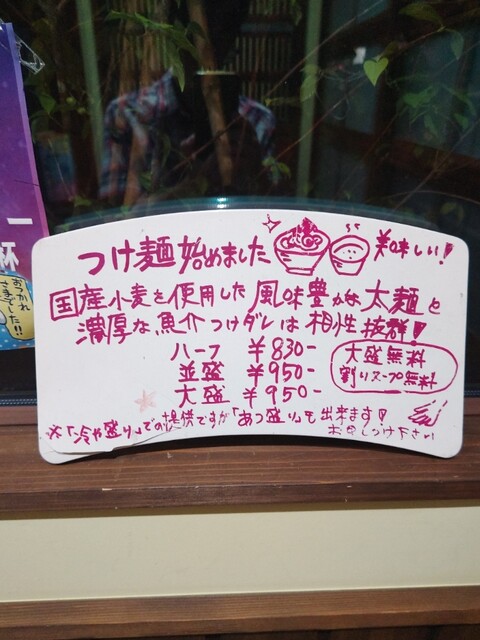 一杯
おつかれ
さまでした!!
つけ麺始めました
美味しい!
国産小麦を使用した風味豊かな太麺と
濃厚な魚介つけダレは相性抜群!
ハーフ ¥830-
並盛 ¥950-
大盛 ¥950-
大盛無料
割りスープ無料
※「冷や盛り」での提供ですが「あつ盛り」も出来ます
お申しつけ下さい